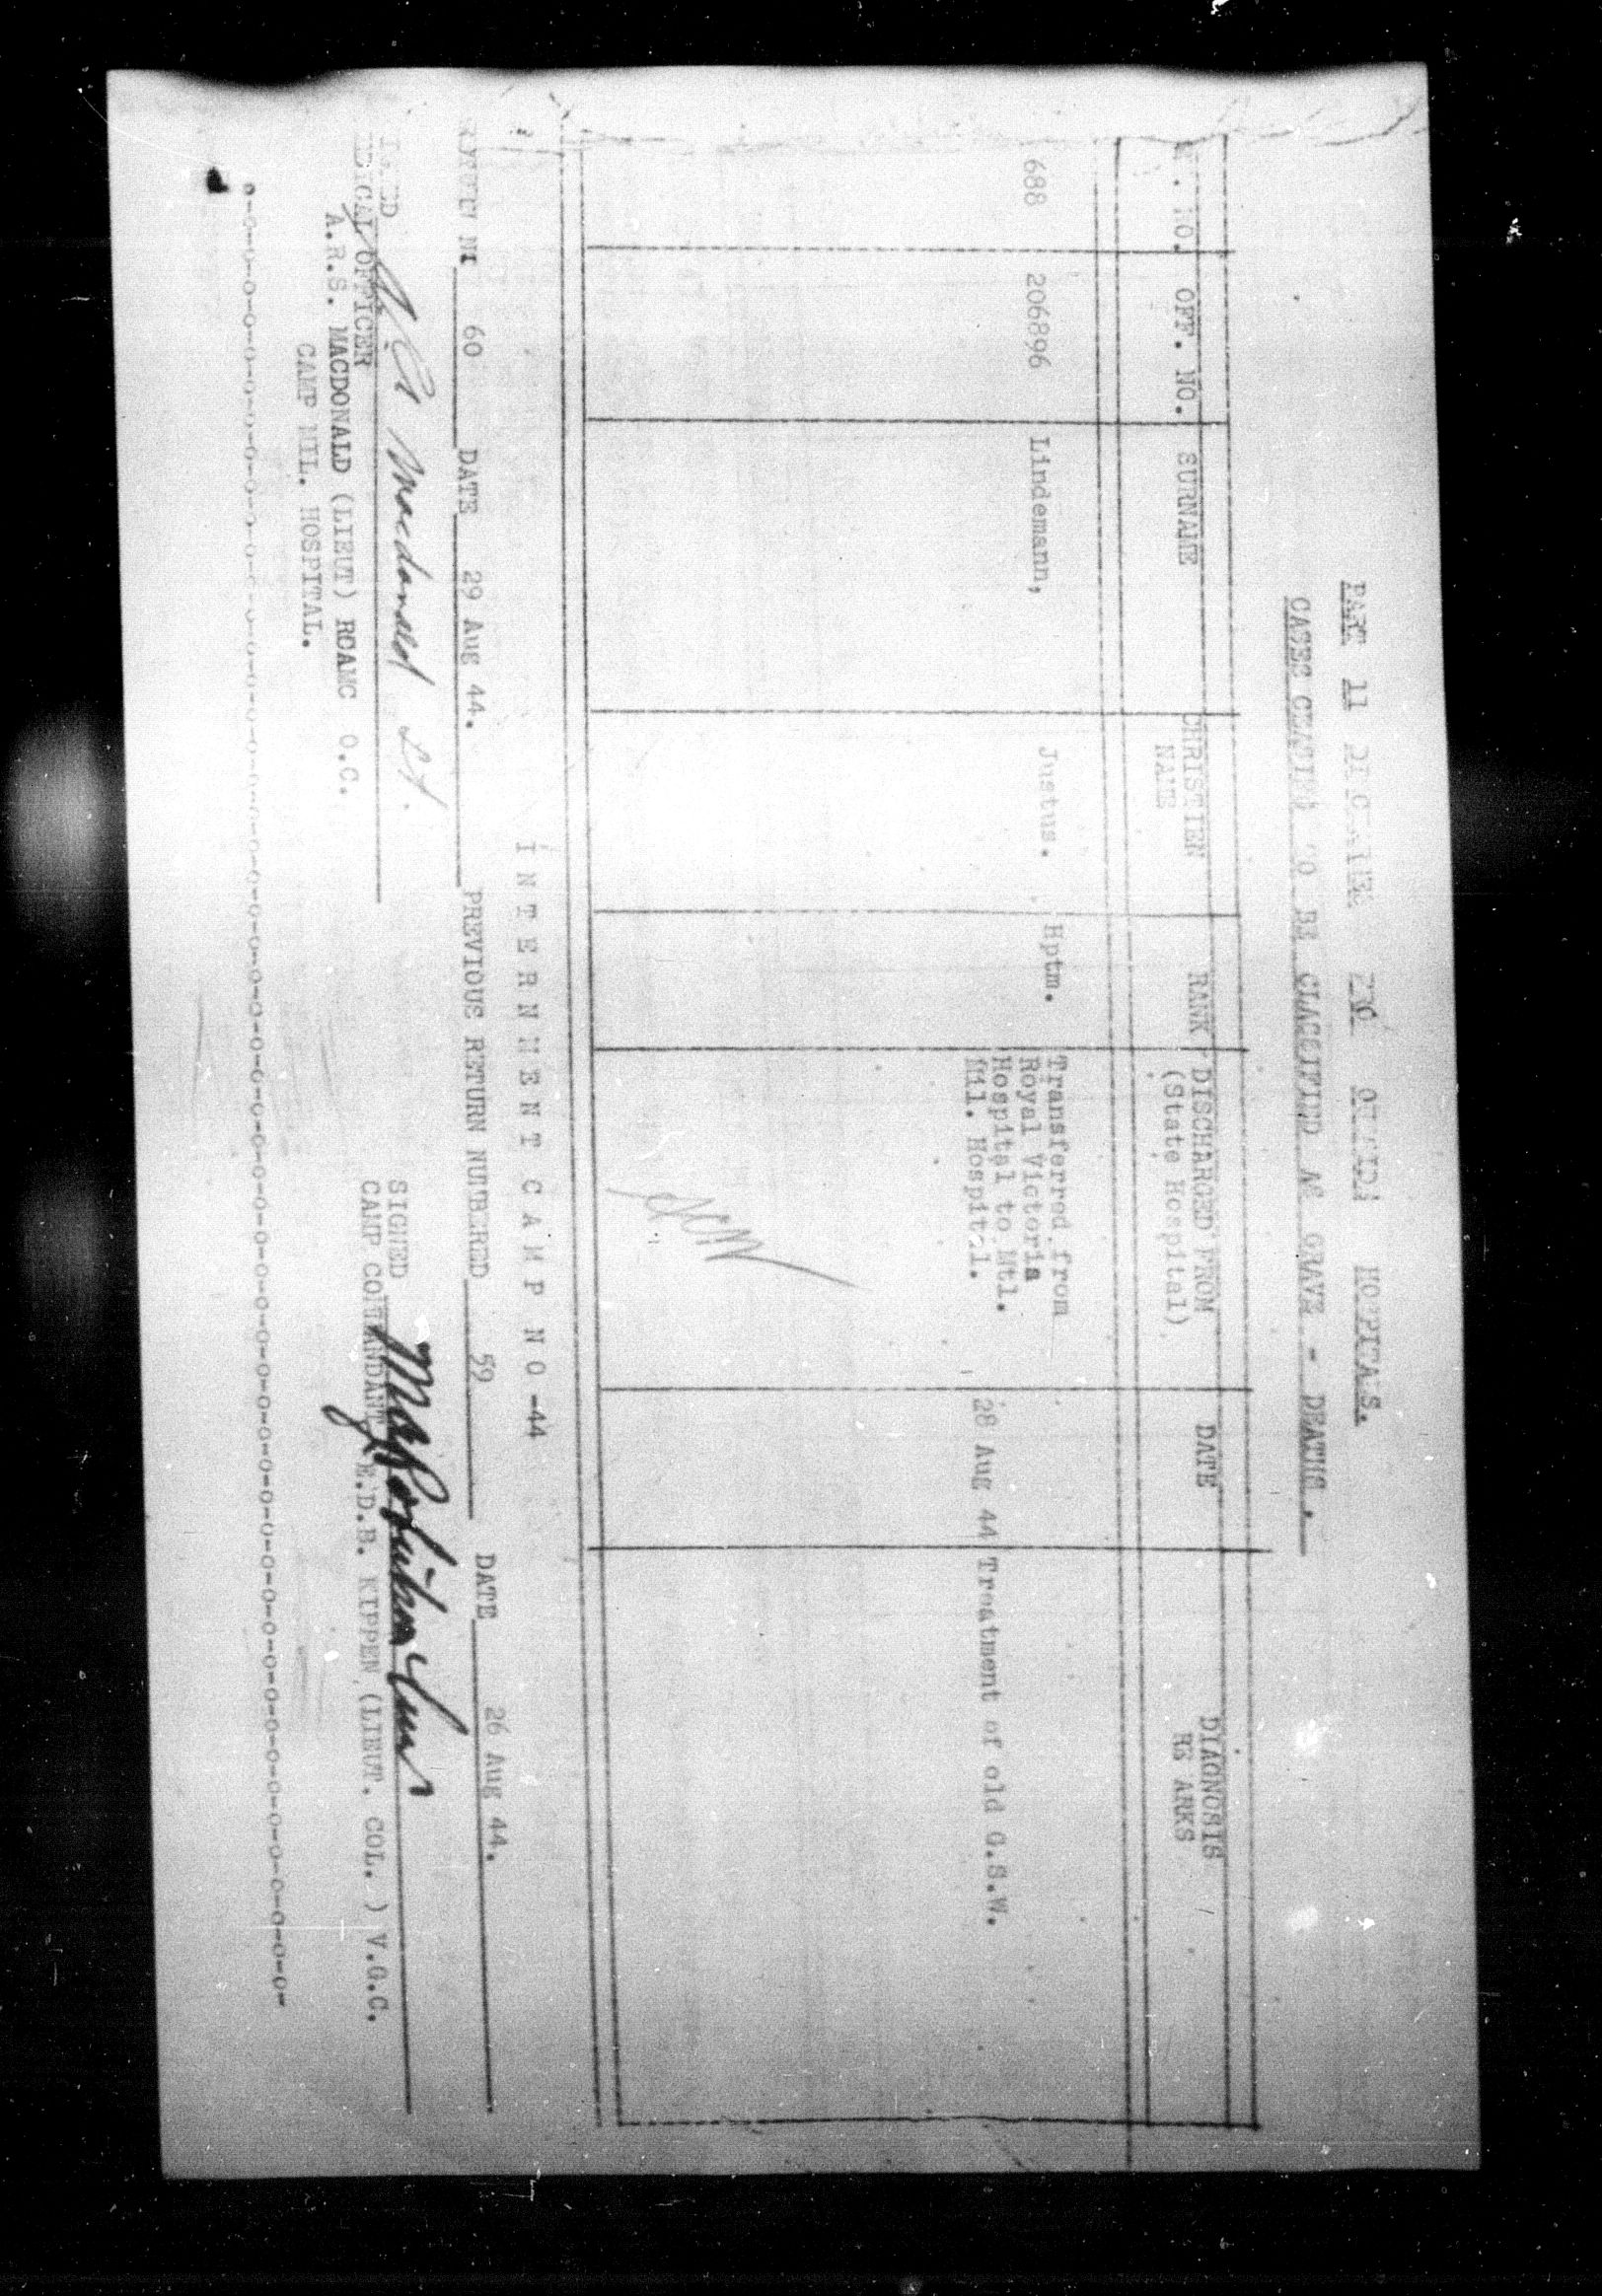 PART 11 DISCHARGE FROM OUTSIDE HOSPITALS.
CASES CEASING TO BE CLASSIFIED AS GRAVE - DEATHS.
NO. OFF. NO. SURNAME CHRISTIEN NAME RANK DISCHARGED FROM (State Hospital) DATE DIAGNOSIS RE ARKS
688 206896 Lindemann, Justus. Hptm. Transferred from
Royal Victoria
Hospital to Mtl.
Mil. Hospital. 28 Aug 44 Treatment of old G.S.W.
INTERNMENT CAMP NO 44
60 DATE 29 Aug 44. PREVIOUS RETURN NUMBERED 59 DATE 26 Aug 44.
Macdonald Lt. SIGNED
MEDICAL OFFICER CAMP COMMANDANT E.D.B. KIPPEN (LIEUT. COL. ) V.G.C.
A.R.S. MACDONALD (LIEUT) RCAMC O.C.
CAMP MIL. HOSPITAL.